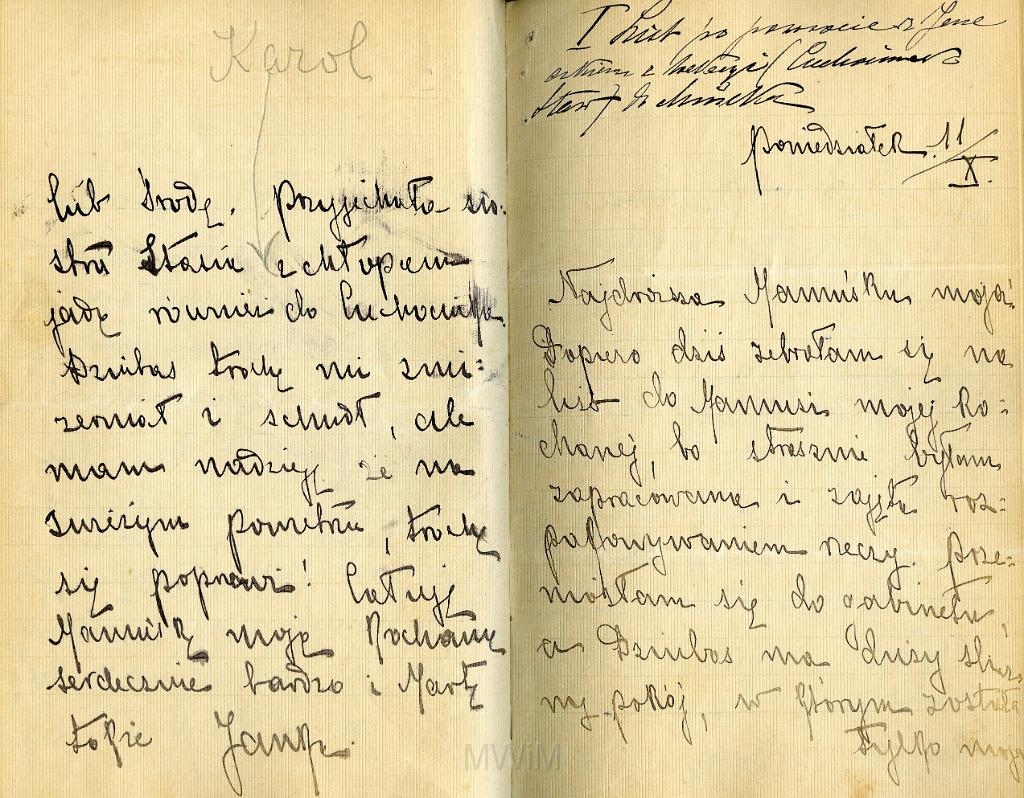 Karol
lub środę. Przyjechała sio-
stra Stasia z chłopcem
jadę również do Cuchocinka.
Dziubas trochę mi zmi-
zerniał i schudł, ale
mam nadzieję że na
świeżym powietrzu, trochę
się poprawi! Całuję
Mamusię moją Kochaną
serdecznie bardzo i Martę
także Janka.
I List po powrocie z
z (
Staw) do Mińska
Poniedziałek 11/X.
Najdroższa Mamusiu moja!
Dopiero dziś zebrałam się na
list do Mamusi mojej Ko-
chanej, bo strasznie byłam
zapracowana i zajęta roz-
pakowywaniem rzeczy. Prze-
niosłam się do gabinetu,
a Dziubas ma duży slicz-
ny pokój, w którym została
tylko moja
MWiM